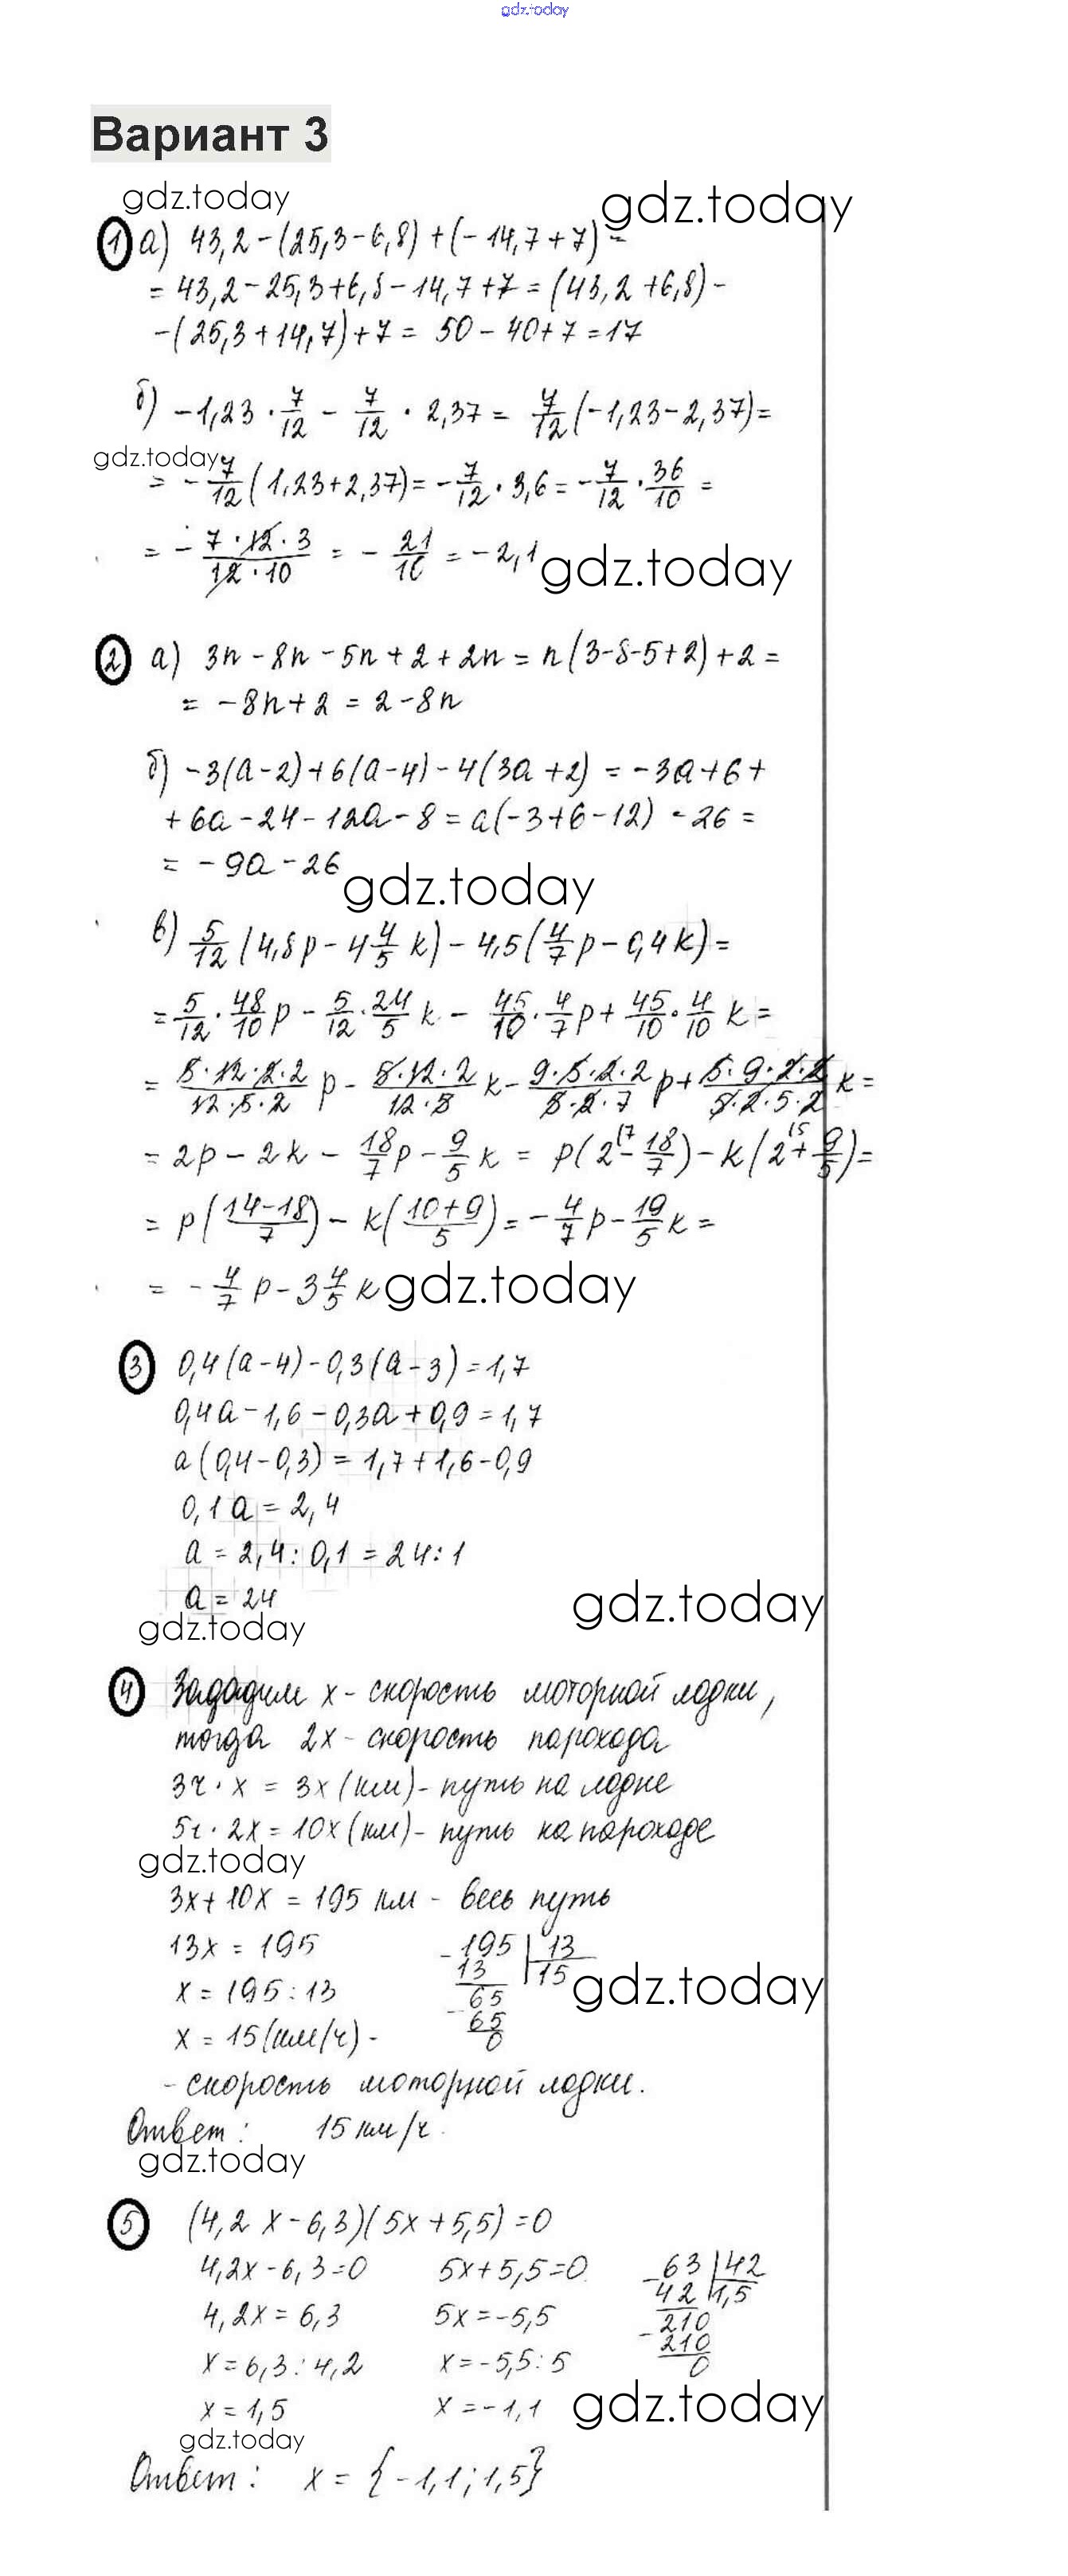 gdz.today
Вариант 3
gdz.today
gdz.today
① а) 43,2 - (25,3 - 6,8) + (- 14,7 + 7) =
= 43,2 - 25,3 + 6,8 - 14,7 + 7 = (43,2 + 6,8) -
- (25,3 + 14,7) + 7 = 50 - 40 + 7 = 17
б) -1,23 · 7/12 - 7/12 · 2,37 = 7/12 (-1,23 - 2,37) =
gdz.today
= - 7/12 (1,23 + 2,37) = - 7/12 · 3,6 = - 7/12 · 36/10 =
= - 7 · 12 · 3 / 12 · 10 = - 21/10 = -2,1
gdz.today
② а) 3n - 8n - 5n + 2 + 2n = n (3 - 8 - 5 + 2) + 2 =
= -8n + 2 = 2 - 8n
б) -3(a - 2) + 6(a - 4) - 4(3a + 2) = -3a + 6 +
+ 6a - 24 - 12a - 8 = a(-3 + 6 - 12) - 26 =
= - 9a - 26
gdz.today
в) 5/12 (4,8p - 4 4/5 k) - 4,5 (4/7 p - 0,4k) =
= 5/12 · 48/10 p - 5/12 · 24/5 k - 45/10 · 4/7 p + 45/10 · 4/10 k =
= 5·12·2·2 / 12·5·2 p - 5·12·2 / 12·5 k - 9·5·2·2 / 5·2·7 p + 5·9·2·2 / 5·2·5·2 k =
= 2p - 2k - 18/7 p - 9/5 k = p (2 (7 - 18/7) - k (2 (5 + 9/5) =
= p (14-18 / 7) - k (10+9 / 5) = - 4/7 p - 19/5 k =
= - 4/7 p - 3 4/5 k
gdz.today
③ 0,4 (a - 4) - 0,3 (a - 3) = 1,7
0,4a - 1,6 - 0,3a + 0,9 = 1,7
a (0,4 - 0,3) = 1,7 + 1,6 - 0,9
0,1 a = 2,4
a = 2,4 : 0,1 = 24 : 1
a = 24
gdz.today
gdz.today
④ Зададим x - скорость моторной лодки,
тогда 2x - скорость парохода
3ч · x = 3x (км) - путь на лодке
5ч · 2x = 10x (км) - путь на пароходе
gdz.today
3x + 10x = 195 км - весь путь
13x = 195
x = 195 : 13
x = 15 (км/ч) -
195 | 13
13 | 15
65
65
0
gdz.today
- скорость моторной лодки.
Ответ: 15 км/ч.
gdz.today
⑤ (4,2 x - 6,3)(5x + 5,5) = 0
4,2x - 6,3 = 0 5x + 5,5 = 0
4,2x = 6,3 5x = -5,5
x = 6,3 : 4,2 x = -5,5 : 5
x = 1,5 x = -1,1
63 | 42
42 | 1,5
210
210
0
gdz.today
gdz.today
Ответ: x = {-1,1; 1,5}